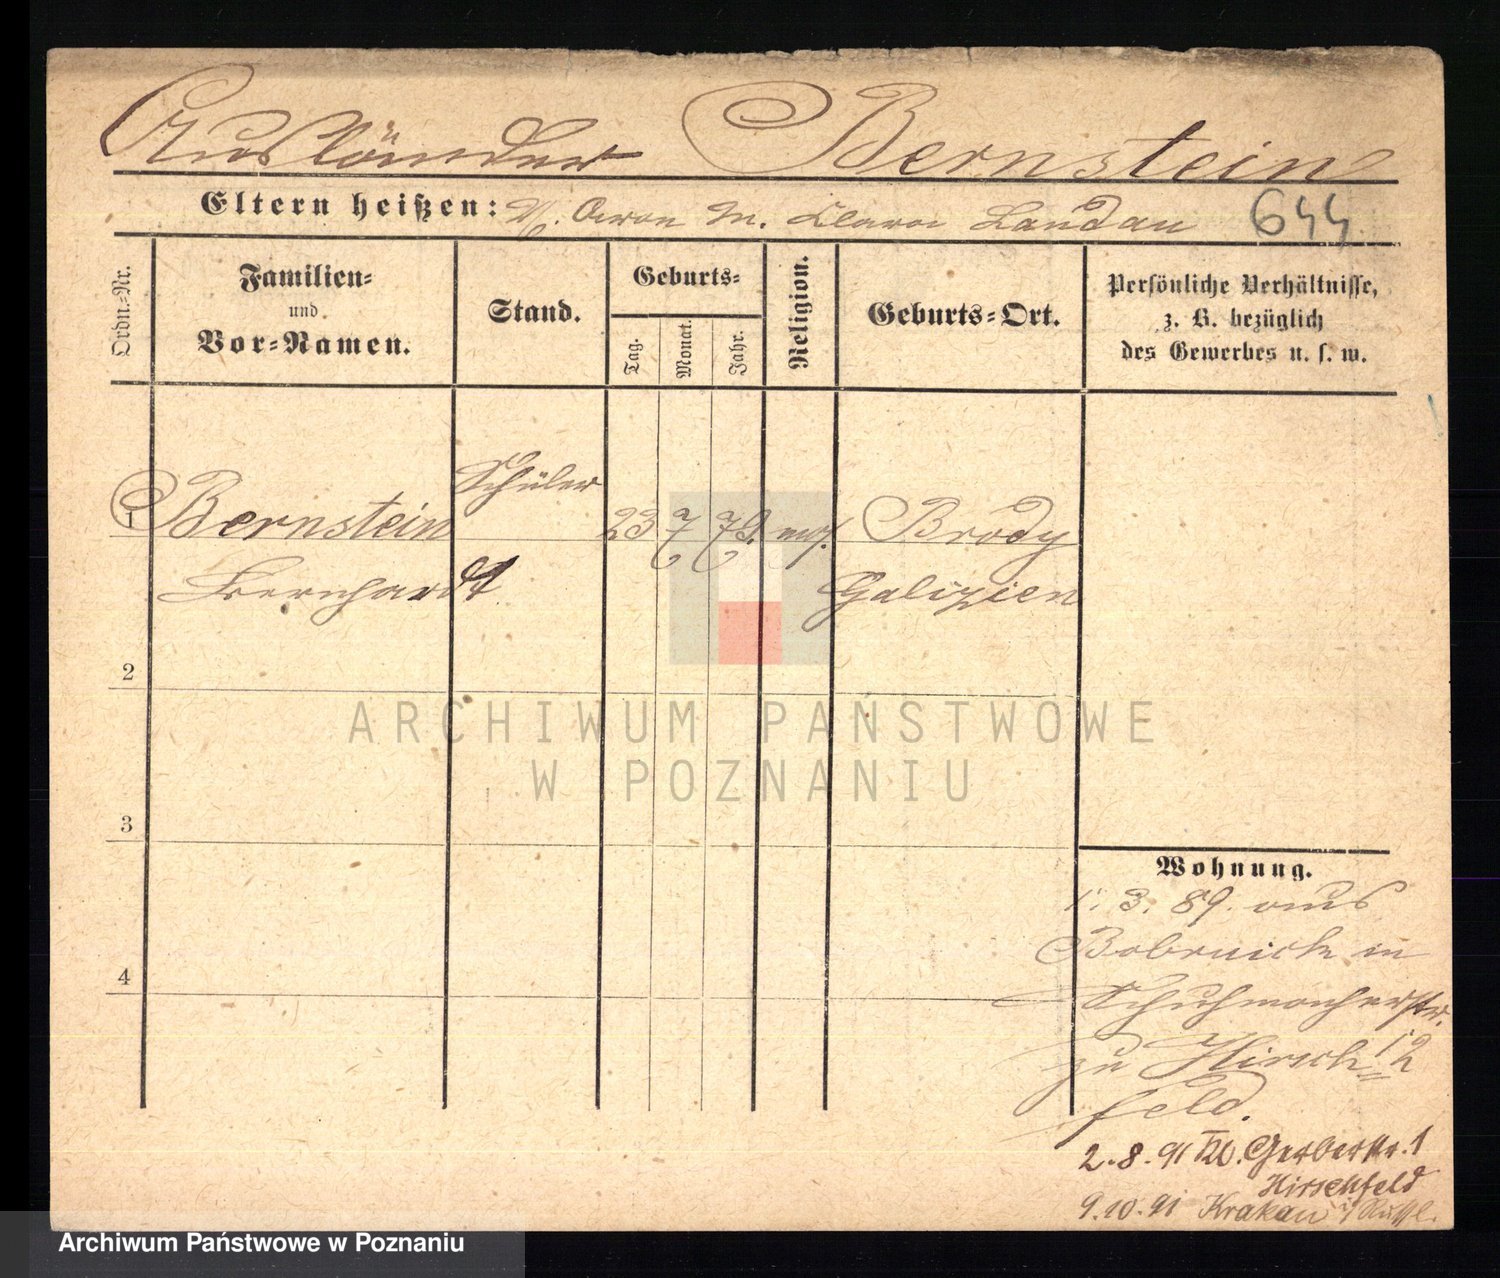 Ausländer Bernstein
Eltern heißen: V. Aron M. Clara Landau 644
Ordn.-Nr.
Familien-
und
Vor-Namen.
Stand.
Geburts-
Tag.
Monat.
Jahr.
Religion.
Geburts-Ort.
Persönliche Verhältnisse,
z. B. bezüglich
des Gewerbes u. s. w.
1 Bernstein Schüler 23 7 79. mos. Brody
Bernhardt Galizien
2
3
4
ARCHIWUM PAŃSTWOWE
W POZNANIU
Wohnung.
1. 3. 89. aus
Bobruisk in
Schuhmacherstr.
zu Hirsch= 12
feld.
2.8.91 Gerberstr. 1
Hirschfeld
9.10.91 Krakau
Archiwum Państwowe w Poznaniu